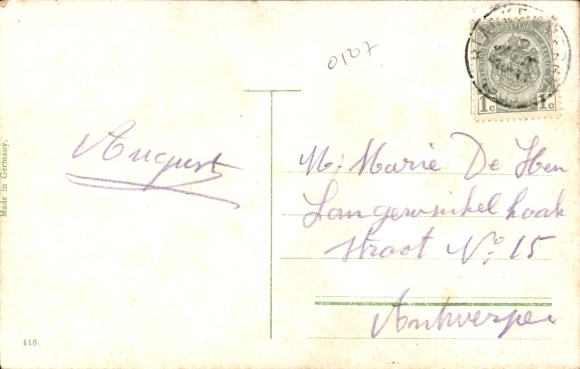 0107
1c 1c
August
M: Marie De Hen
Langewinkel haak
straat No: 15
Antwerpen
Made in Germany.
416.